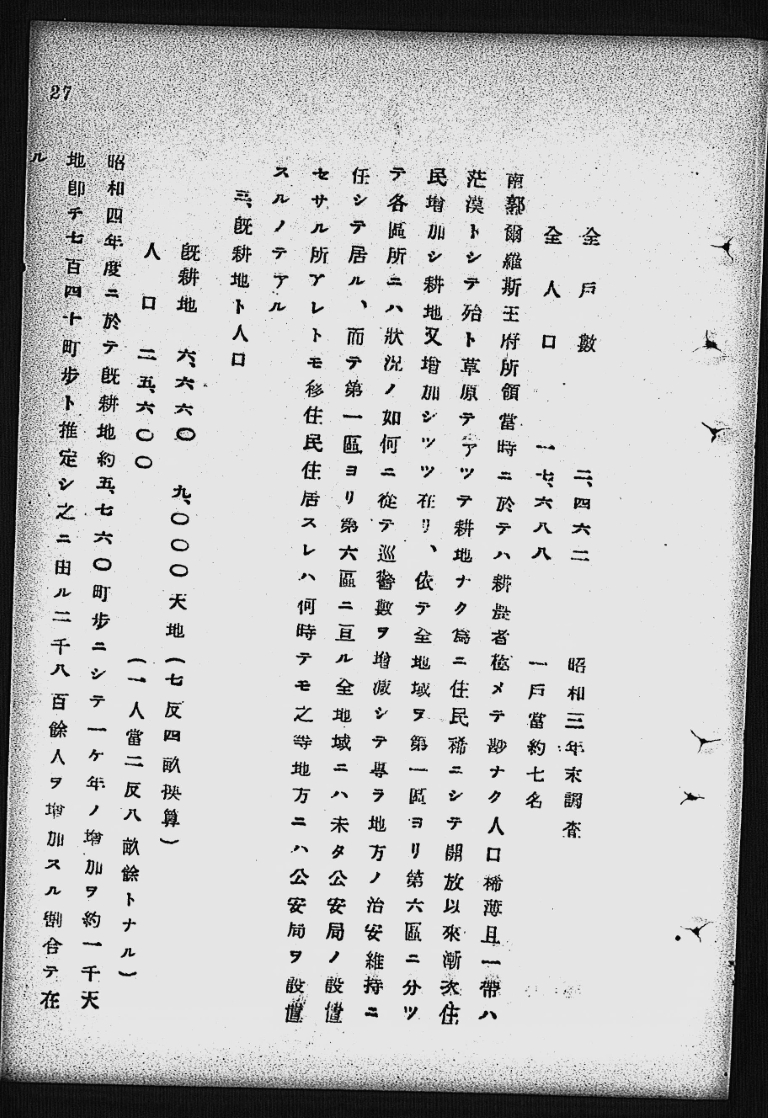 27
全戶數 二、四六二 昭和三年末調査
全人口 一七、六八八 一戶當約七名
南郭爾羅斯王府所領當時ニ於テハ耕農者極メテ尠ナク人口稀薄且一帶ハ
茫漠トシテ殆ト草原テアツテ耕地ナク爲ニ住民稀ニシテ開放以來漸次住
民增加シ耕地又增加シツツ在リ、依テ全地域ヲ第一區ヨリ第六區ニ分ツ
テ各區所ニハ狀況ノ如何ニ從テ巡警數ヲ增減シテ專ラ地方ノ治安維持ニ
任シテ居ル、而テ第一區ヨリ第六區ニ亘ル全地域ニハ未タ公安局ノ設置
セサル所アレトモ移住民住居スレハ何時テモ之等地方ニハ公安局ヲ設置
スルノテアル
三、旣耕地ト人口
旣耕地 六、六六〇 九、〇〇〇天地(七反四畝換算)
人口 二五、六〇〇 (一人當二反八畝餘トナル)
昭和四年度ニ於テ旣耕地約五、七六〇町步ニシテ一ケ年ノ增加ヲ約一千天
地卽チ七百四十町步ト推定シ之ニ由ル二千八百餘人ヲ增加スル割合テ在
ル